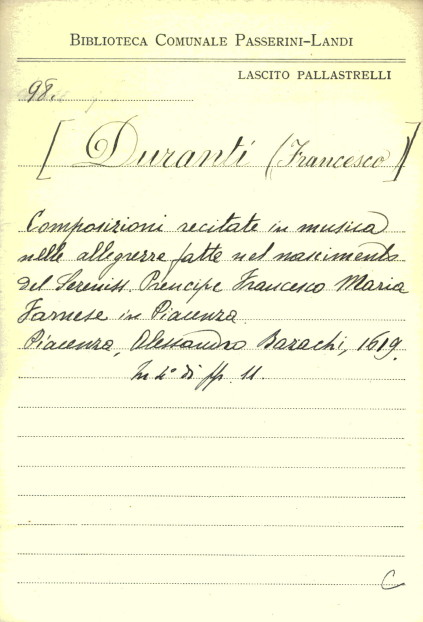 BIBLIOTECA COMUNALE PASSERINI-LANDI
LASCITO PALLASTRELLI
98.
[Duranti (Francesco)]
Composizioni recitate in musica
nelle allegrezze fatte nel nascimento
del Sereniss. Principe Francesco Maria
Farnese in Piacenza.
Piacenza, Alessandro Bazachi, 1619.
In 4° di pp. 11.
C